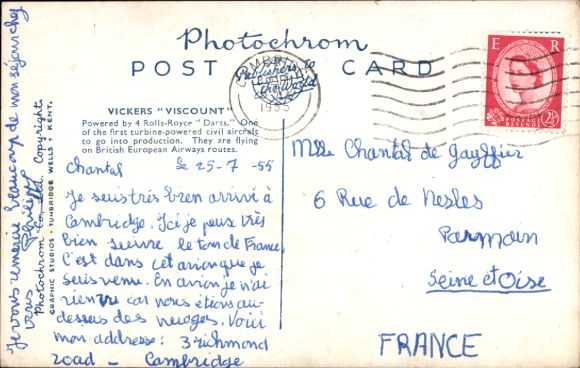 Photochrom
POST CARD
Publishers to
the World
CAMBRIDGE
1955
E R
POSTAGE
REVENUE
2½
VICKERS "VISCOUNT"
Powered by 4 Rolls-Royce "Darts." One
of the first turbine-powered civil aircraft
to go into production. They are flying
on British European Airways routes.
Chantal le 25-7-55
Je suis très bien arrivé à
Cambridge. Ici je peux très
bien suivre le tour de France
C'est dans cet avion que je
suis venu. En avion je n'ai
rien vu car nous étions au-
dessus des nuages. Voici
mon addresse: 3 richmond
road - Cambridge
Je vous remercie beaucoup de mon séjour chez
vous Philippe
Photochrom Co. Ltd. Copyright.
GRAPHIC STUDIOS · TUNBRIDGE WELLS · KENT.
Mlle Chantal de
6 Rue de Nesles
Parmain
Seine et Oise
FRANCE